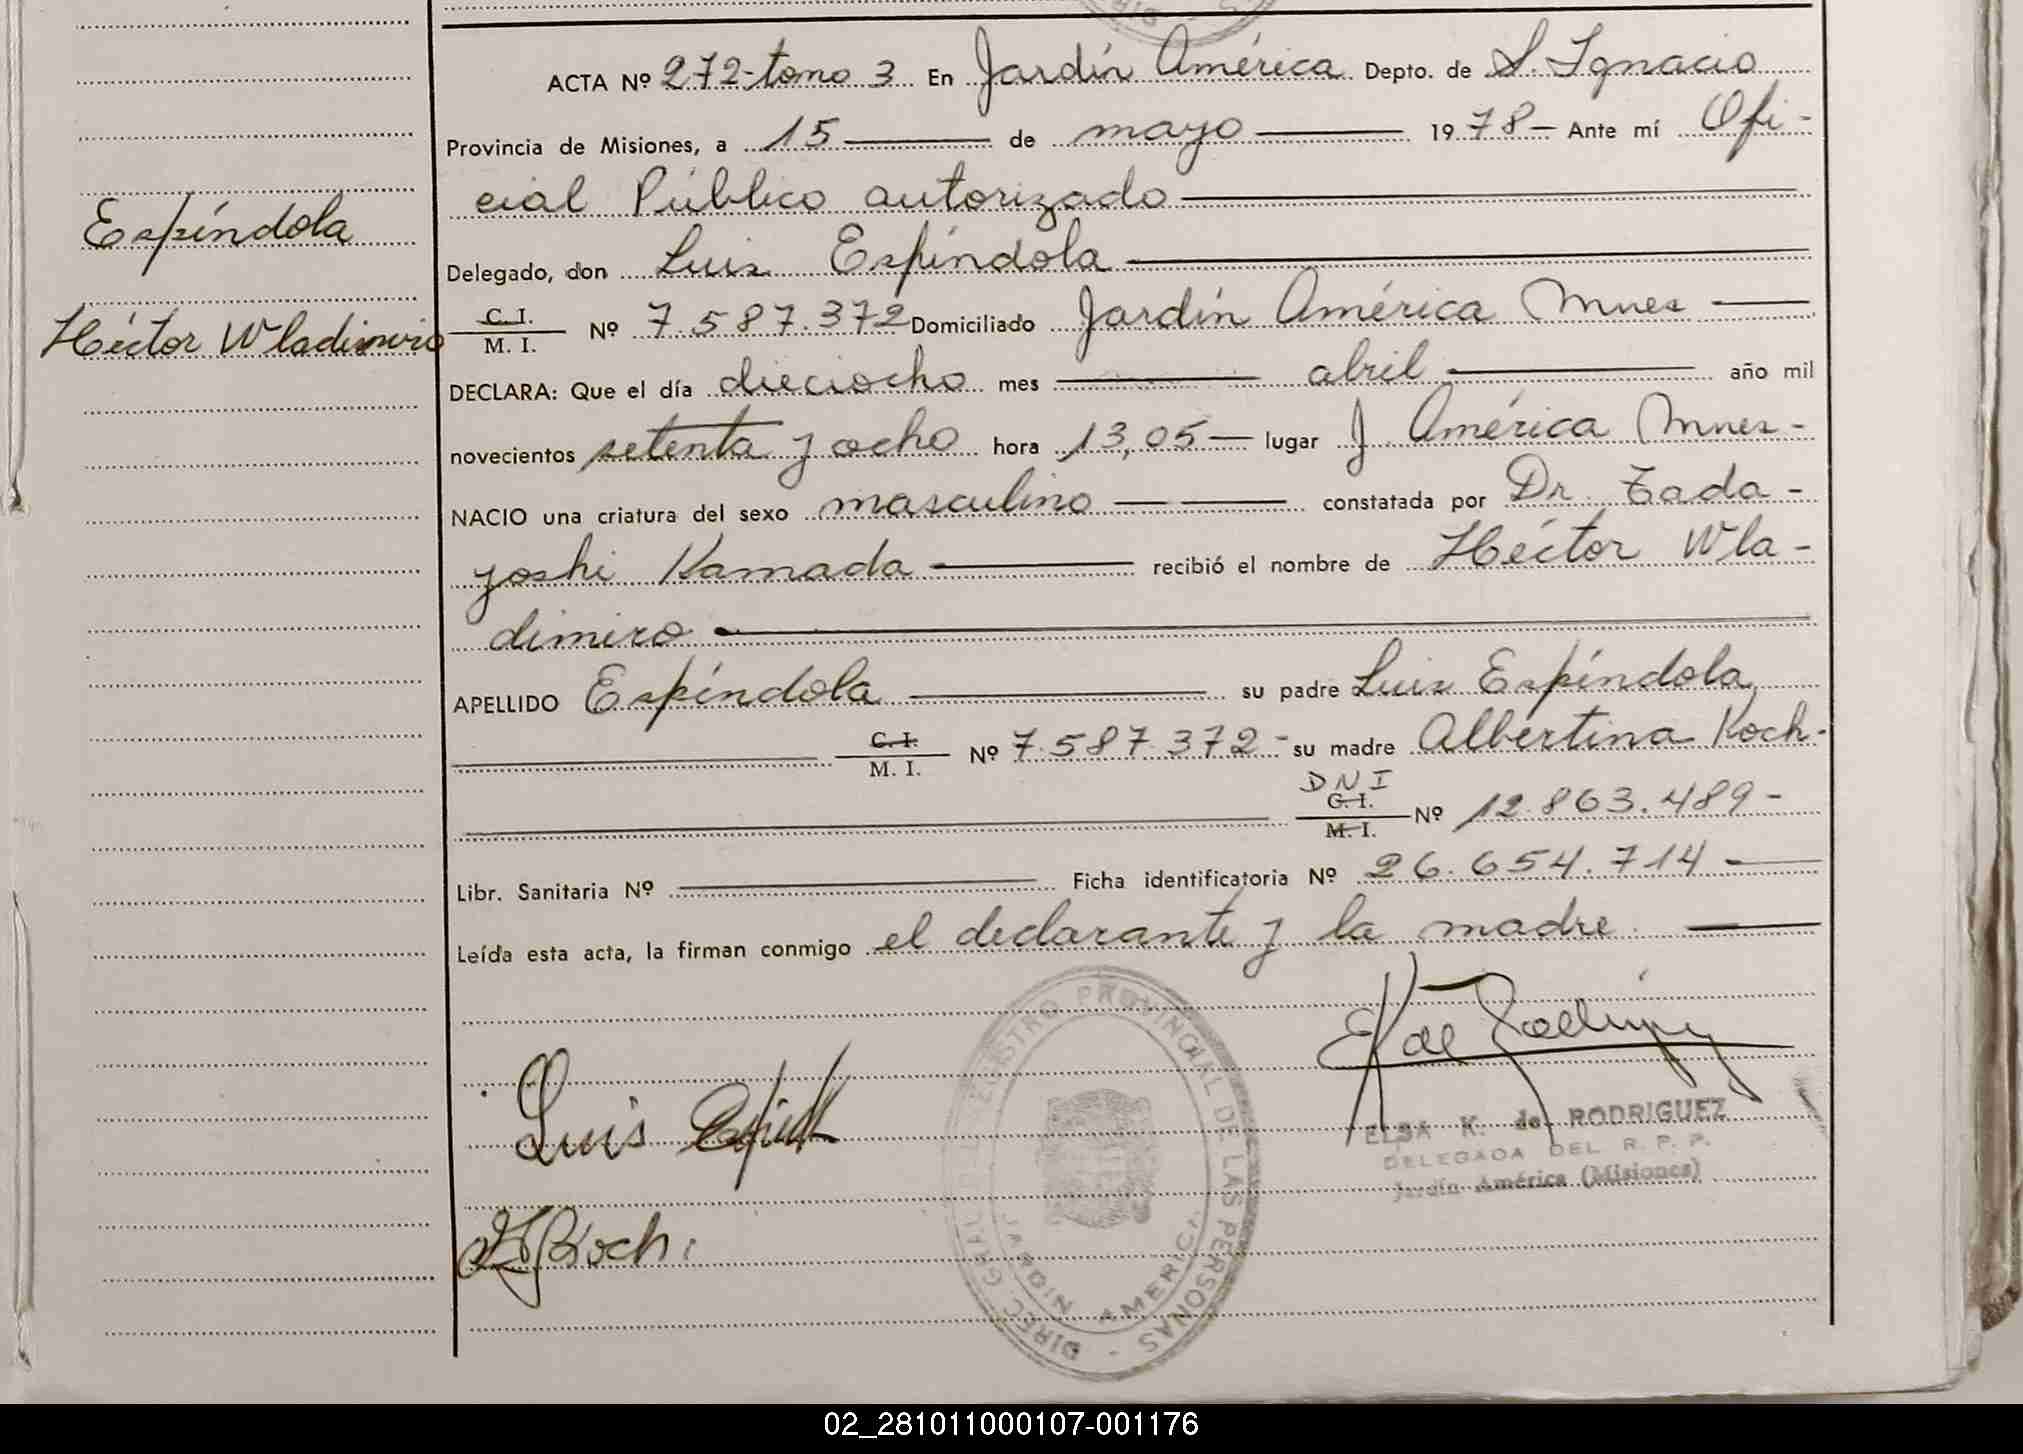 Espíndola
Héctor Wladimiro
ACTA Nº 272-tomo 3 En Jardín América Depto. de S. Ignacio
Provincia de Misiones, a 15 de mayo 1978- Ante mí Ofi-
cial Público autorizado
Delegado, don Luis Espíndola
C. I.
M. I. Nº 7.587.372 Domiciliado Jardín América Mnes
DECLARA: Que el día dieciocho mes abril año mil
novecientos setenta y ocho hora 13,05 lugar J. América Mnes-
NACIO una criatura del sexo masculino constatada por Dr. Tada-
yoshi Kamada recibió el nombre de Héctor Wla-
dimiro
APELLIDO Espíndola su padre Luis Espíndola
C. I.
M. I. Nº 7.587.372- su madre Albertina Koch-
DNI
C. I.
M. I. Nº 12.863.489-
Libr. Sanitaria Nº Ficha identificatoria Nº 26.654.714
Leída esta acta, la firman conmigo el declarante y la madre.
Luis
Koch
ELSA K. de RODRIGUEZ
DELEGADA DEL R. P. P.
Jardín América (Misiones)
DIREC. GRAL. REGISTRO PROVINCIAL DE LAS PERSONAS
JARDIN AMERICA
02_281011000107-001176